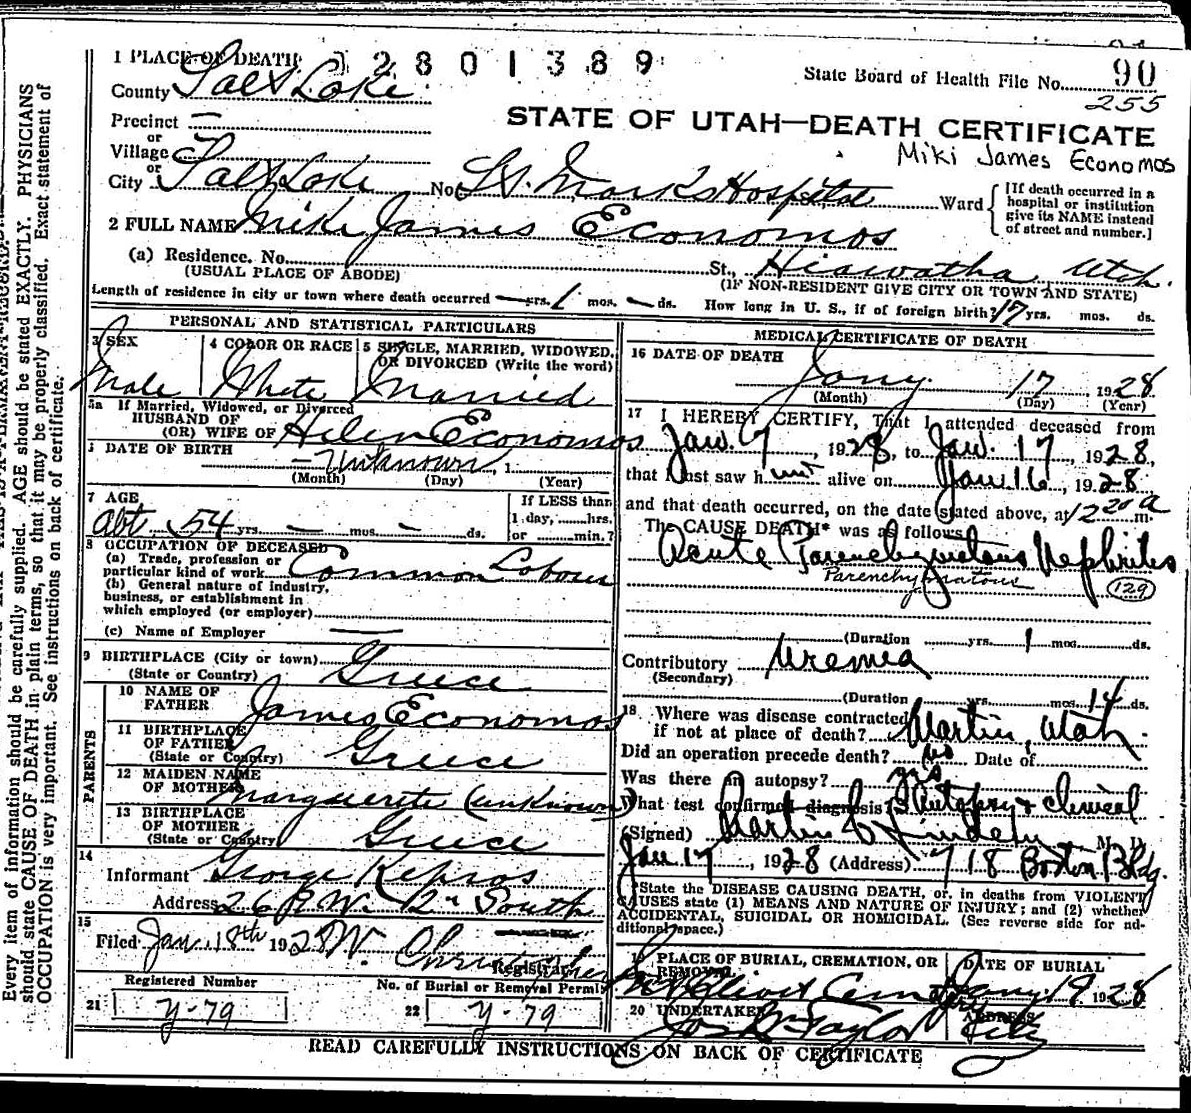 1 PLACE OF DEATH 02801389
State Board of Health File No. 90
255
County Salt Lake
STATE OF UTAH—DEATH CERTIFICATE
Precinct —
or
Village
or
City Salt Lake No. St. Marks Hospital Ward
Miki James Economos
[If death occurred in a
hospital or institution
give its NAME instead
of street and number.]
2 FULL NAME Mike James Economos
(a) Residence. No. St., Hiawatha Utah.
(USUAL PLACE OF ABODE) (IF NON-RESIDENT GIVE CITY OR TOWN AND STATE)
Length of residence in city or town where death occurred — yrs. 1 mos. — ds. How long in U. S., if of foreign birth? 17 yrs. mos. ds.
PERSONAL AND STATISTICAL PARTICULARS
3 SEX
Male
4 COLOR OR RACE
White
5 SINGLE, MARRIED, WIDOWED,
OR DIVORCED (Write the word)
Married
5a If Married, Widowed, or Divorced
HUSBAND OF
(OR) WIFE OF Helen Economos
6 DATE OF BIRTH
— Unknown, 1
(Month) (Day) (Year)
7 AGE
Abt 54 yrs. — mos. — ds.
If LESS than
1 day, hrs.
or min.?
8 OCCUPATION OF DECEASED
(a) Trade, profession or
particular kind of work Common Labour
(b) General nature of industry,
business, or establishment in
which employed (or employer)
(c) Name of Employer —
9 BIRTHPLACE (City or town)
(State or Country) Greece
PARENTS
10 NAME OF
FATHER James Economos
11 BIRTHPLACE
OF FATHER
(State or Country) Greece
12 MAIDEN NAME
OF MOTHER Marguerite (unknown)
13 BIRTHPLACE
OF MOTHER
(State or Country) Greece
14
Informant George Kepros
Address 268 W. 2nd South
15
Filed Jan 18th 1928
Registrar
Registered Number
21 y-79
No. of Burial or Removal Permit
22 y-79
MEDICAL CERTIFICATE OF DEATH
16 DATE OF DEATH
Jany. 17 1928
(Month) (Day) (Year)
17 I HEREBY CERTIFY, That I attended deceased from
Jan. 7, 1928, to Jan. 17, 1928,
that I last saw him alive on Jan 16, 1928
and that death occurred, on the date stated above, at 12 20 a m.
The CAUSE DEATH* was as follows:
Acute Parenchymatous Nephritis
Parenchymatous 129
(Duration yrs. 1 mos. ds.
Contributory Uremia
(Secondary)
(Duration yrs. mos. 14 ds.
18 Where was disease contracted
if not at place of death? Martin, Utah.
Did an operation precede death? no Date of
Was there an autopsy? yes
What test confirmed diagnosis? Autopsy & clinical
(Signed) Martin C. Lindem M. D.
Jan 17, 1928 (Address) 718 Boston Bldg.
*State the DISEASE CAUSING DEATH, or, in deaths from VIOLENT
CAUSES state (1) MEANS AND NATURE OF INJURY; and (2) whether
ACCIDENTAL, SUICIDAL OR HOMICIDAL. (See reverse side for additional space.)
19 PLACE OF BURIAL, CREMATION, OR
REMOVAL
Mt Olivet Cemetery
DATE OF BURIAL
Jany 19 1928
20 UNDERTAKER
Jos. Wm. Taylor
ADDRESS
City
READ CAREFULLY INSTRUCTIONS ON BACK OF CERTIFICATE
Every item of information should be carefully supplied. AGE should be stated EXACTLY. PHYSICIANS
should state CAUSE OF DEATH in plain terms, so that it may be properly classified. Exact statement of
OCCUPATION is very important. See instructions on back of certificate.